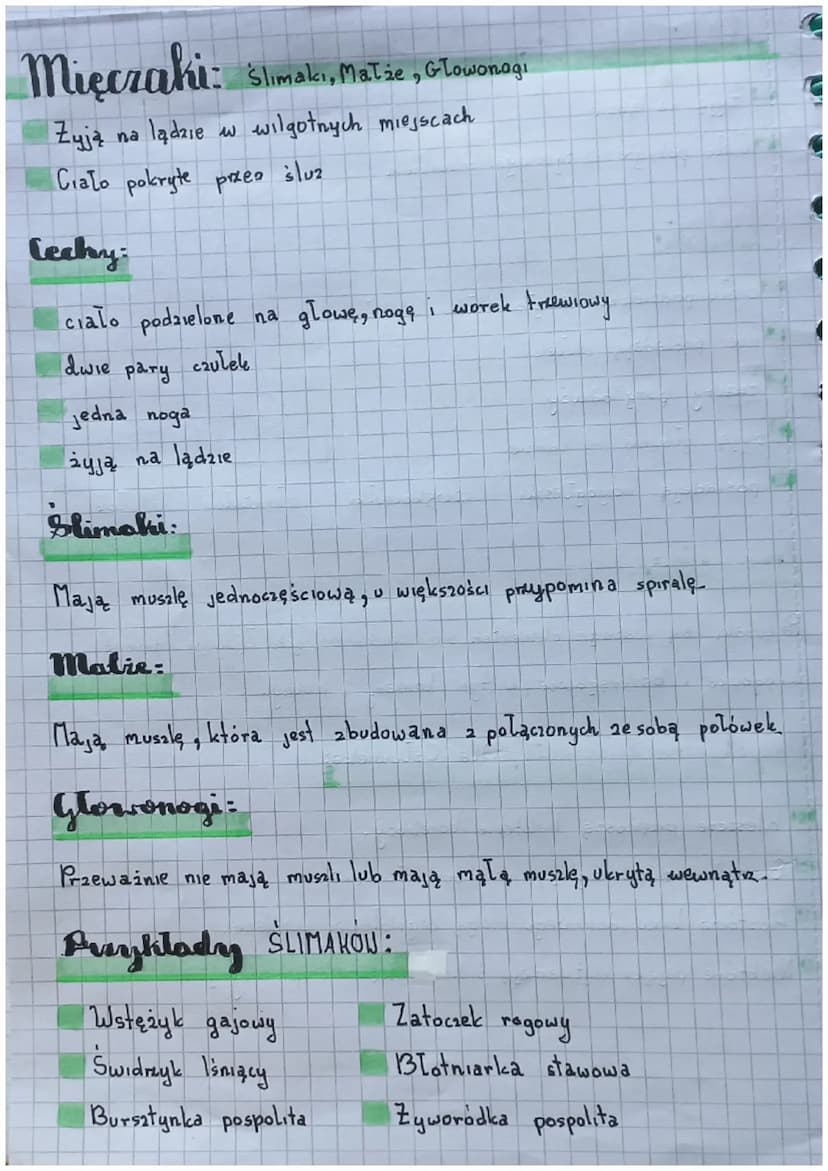 Mięczaki: Ślimaki, Małże, Głowonogi
Żyją na lądzie w wilgotnych miejscach
Ciało pokryte przez śluz
Cechy:
ciało podzielone na głowę, nogę i worek trzewiowy
dwie pary czułek
jedna noga
żyją na lądzie
Ślimaki:
Mają muszlę jednoczęściową, u większości przypomina spiralę
Małże:
Mają muszlę, która jest zbudowana z połączonych ze sobą połówek
Głowonogi:
Przeważnie nie mają muszli lub mają małą muszlę, ukrytą wewnątrz.
Przykłady ŚLIMAKÓW:
Wstężyk gajowy
Świdrzyk lśniący
Bursztynka pospolita
Zatoczek rogowy
Błotniarka stawowa
Żyworódka pospolita